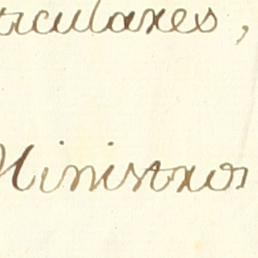 ticulares,
Ministros